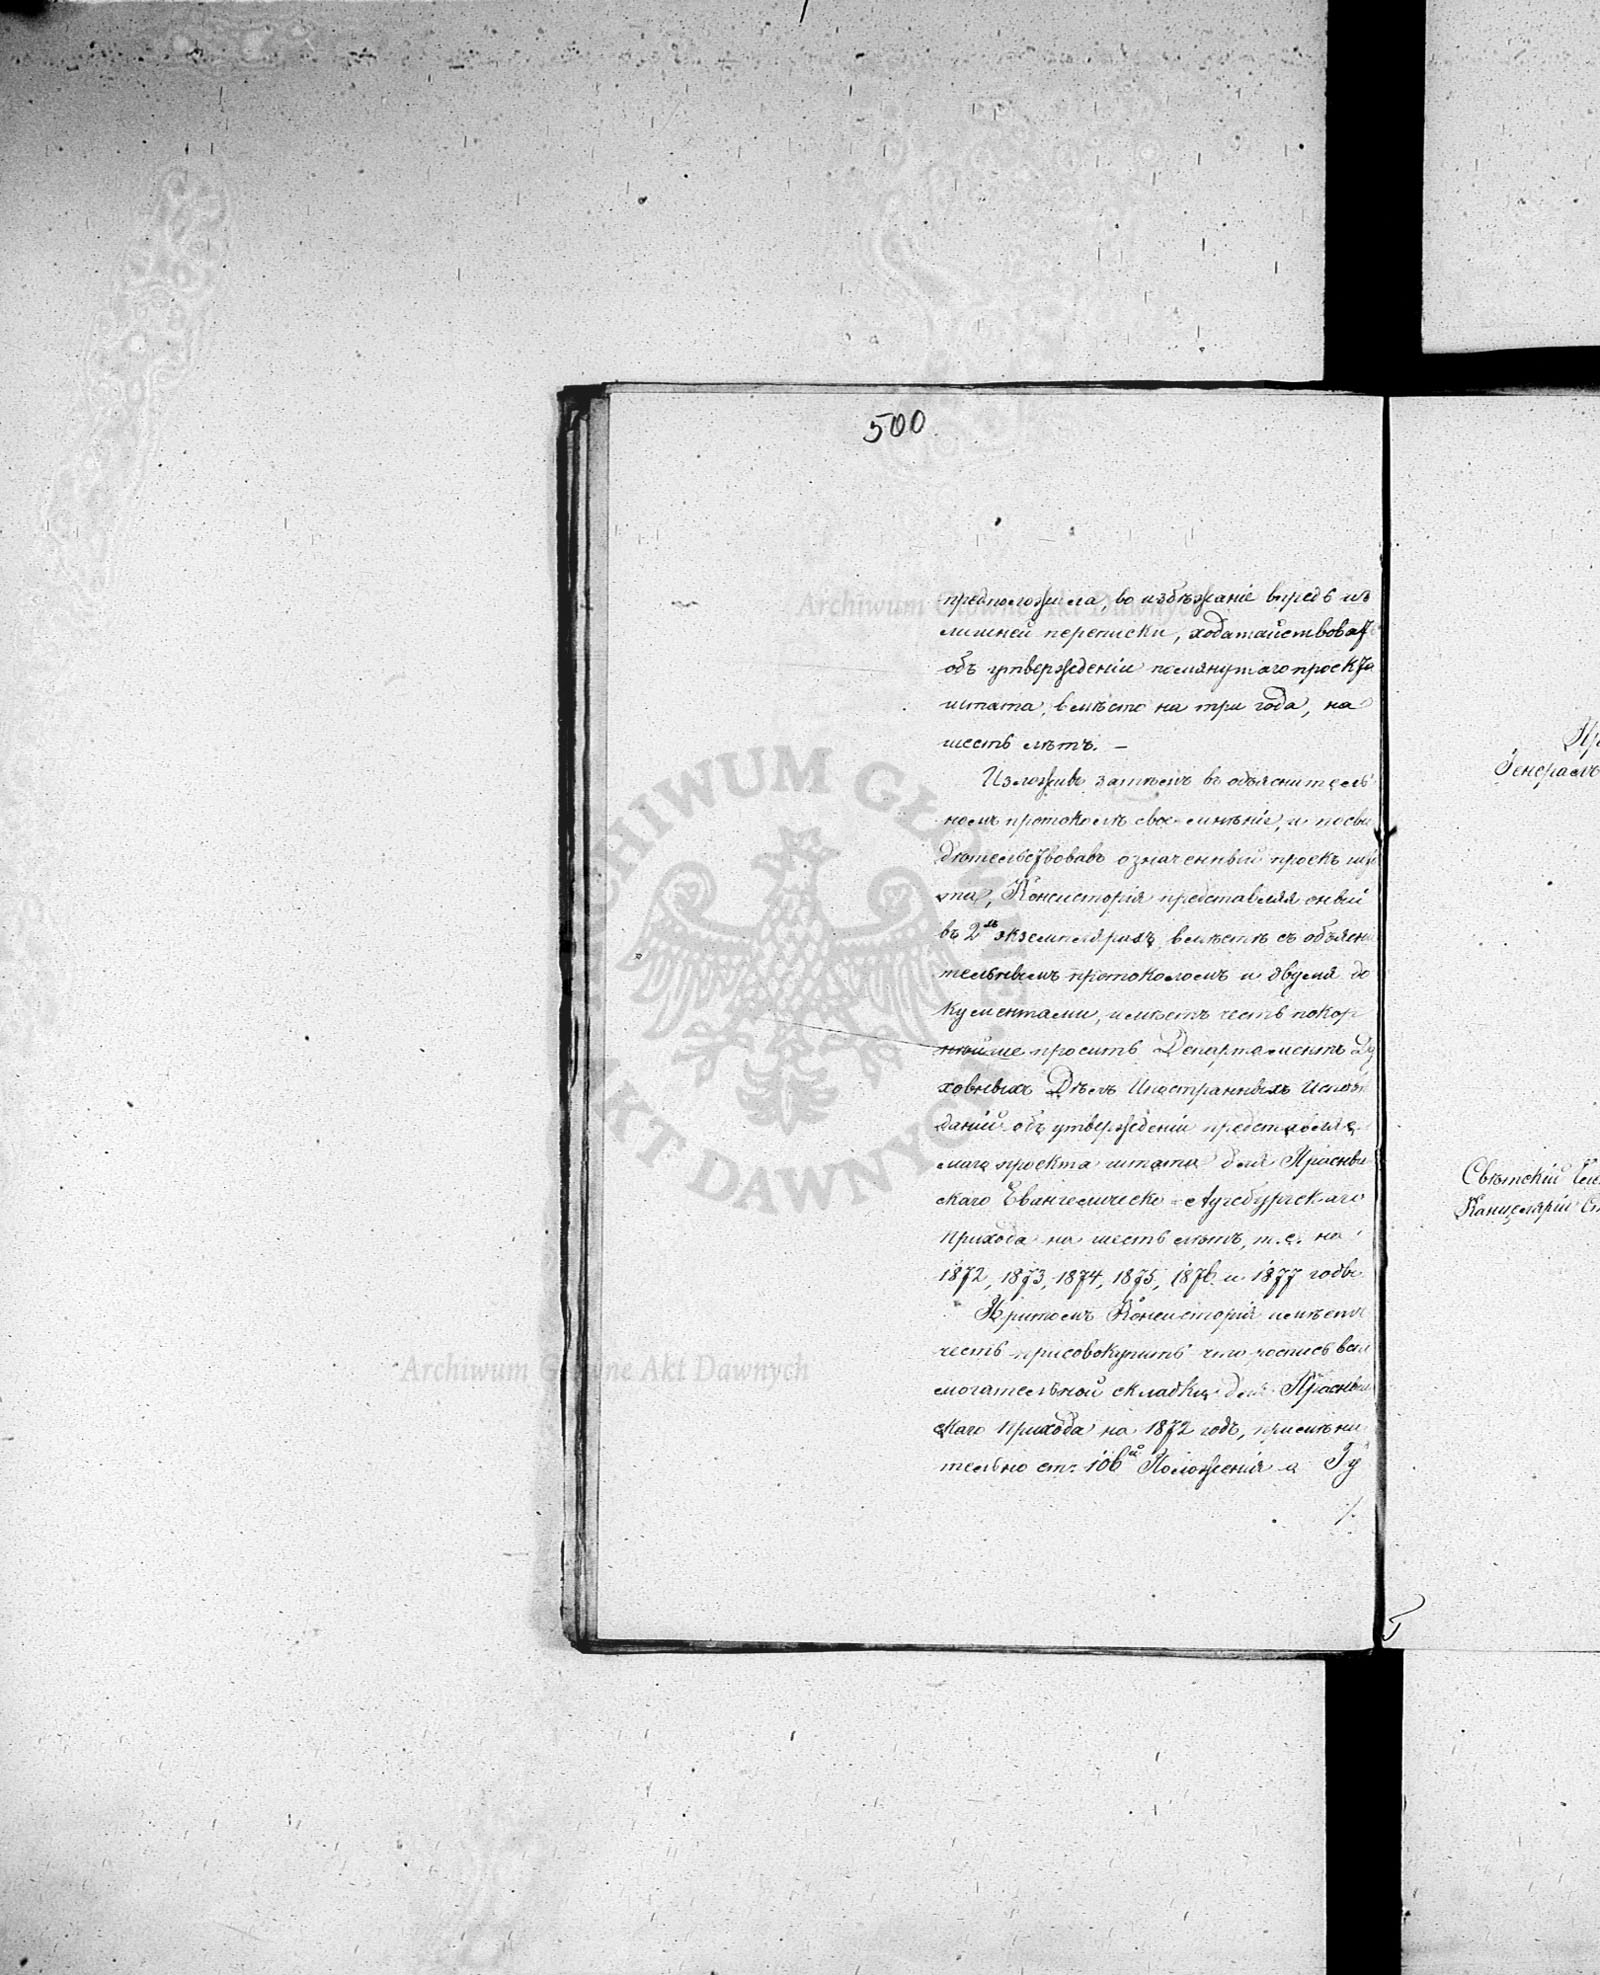 500
предположила, во избѣжаніе впредь из
лишней переписки, ходатайствовать
объ утвержденіи помянутаго проекта
штата, вмѣсто на три года, на
шесть лѣтъ. —
Изложивъ затѣмъ въ объяснитель
номъ протоколѣ свое мнѣніе, и посви
дѣтельствовавъ означенный проекъ шта
та, Консисторія представляя оный
въ 2хъ экземплярахъ вмѣстѣ съ объясни
тельнымъ протоколомъ и двумя до
кументами, имѣетъ честь покор
нѣйше проситъ Департаментъ Ду
ховныхъ Дѣлъ Иностранныхъ Исповѣ
даній объ утвержденіи представляе
маго проекта штата для
скаго Евангелическо-Аугсбургскаго
прихода на шесть лѣтъ, т. е. на
1872, 1873, 1874, 1875, 1876 и 1877 годы
Притомъ Консисторія имѣетъ
честь присовокупить что роспись вспо
могательной складки для
скаго прихода на 1872 годъ, примѣни
тельно ст. 106й Положенія о Гу
./.
Генералъ
Свѣтскій
Канцеляріи